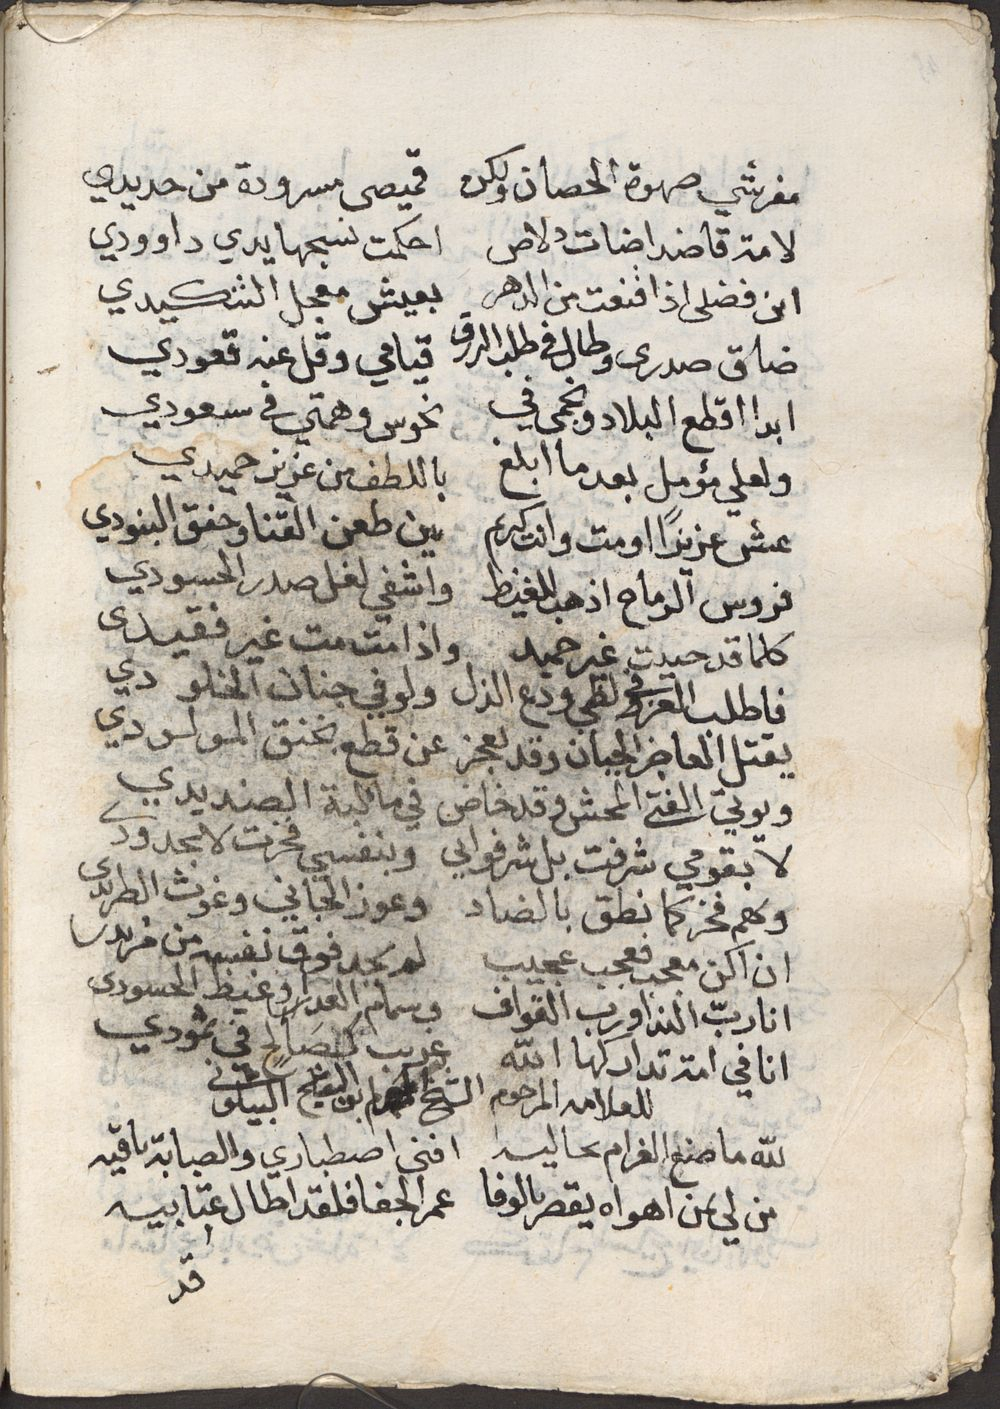 مفرشي صهوة الحصان ولكن قميصى مسرودة من حديدي
لامة قاضة اضات دلاص احكمت نسجها يدي داوودي
اين فضلى اذا قنعت من الدهر بعيش معجل التنكيدي
ضاق صدرى وطال في طلب الرزق قيامي وقل عنه قعودي
ابدا اقطع البلاد ونجمى في نحوس وهمتي في سعودي
ولعلي مؤمل بعد ما ابلغ باللطف من عزيز حميدي
عش عزيزًا او مت وانت كريم بين طعن القنا وخفق البنودي
فروس الرماح اذهب للغيظ واشفي لغل صدر الحسودي
كلما قد حييت غير حميد واذا مت مت غير فقيدى
فاطلب العز في لظي ودع الذل ولو في جنان الخلودي
يقتل العاجز الجبان وقد يعجز عن قطع بخنق المولودي
ويوقى الفتى المخش وقد خاض في ما لبة الصنديدي
لا بقومي شرفت بل شرفوا بي وبنفسي فخرت لا بجدودي
وبهم فخر كل نطق بالضاد وعوذ الجاني وغوث الطريدى
ان اكن معجبا فعجب عجيب لم يجد فوق نفسه من مزيد
انا ربّ الندا ورب القواف وسمام العدا وغيظ الحسودى
انا في امة تداركها الله غريب كصالح في ثمودي
للعلامه المرحوم الشيخ ابو الفتح البيلوني
لله ما صنع الغرام بحاليه افنى اصطباري والصبابة باقيه
من لي بمن اهواه يقصر بالوفا عمر الجفا فلقد اطال عتابيه
قد